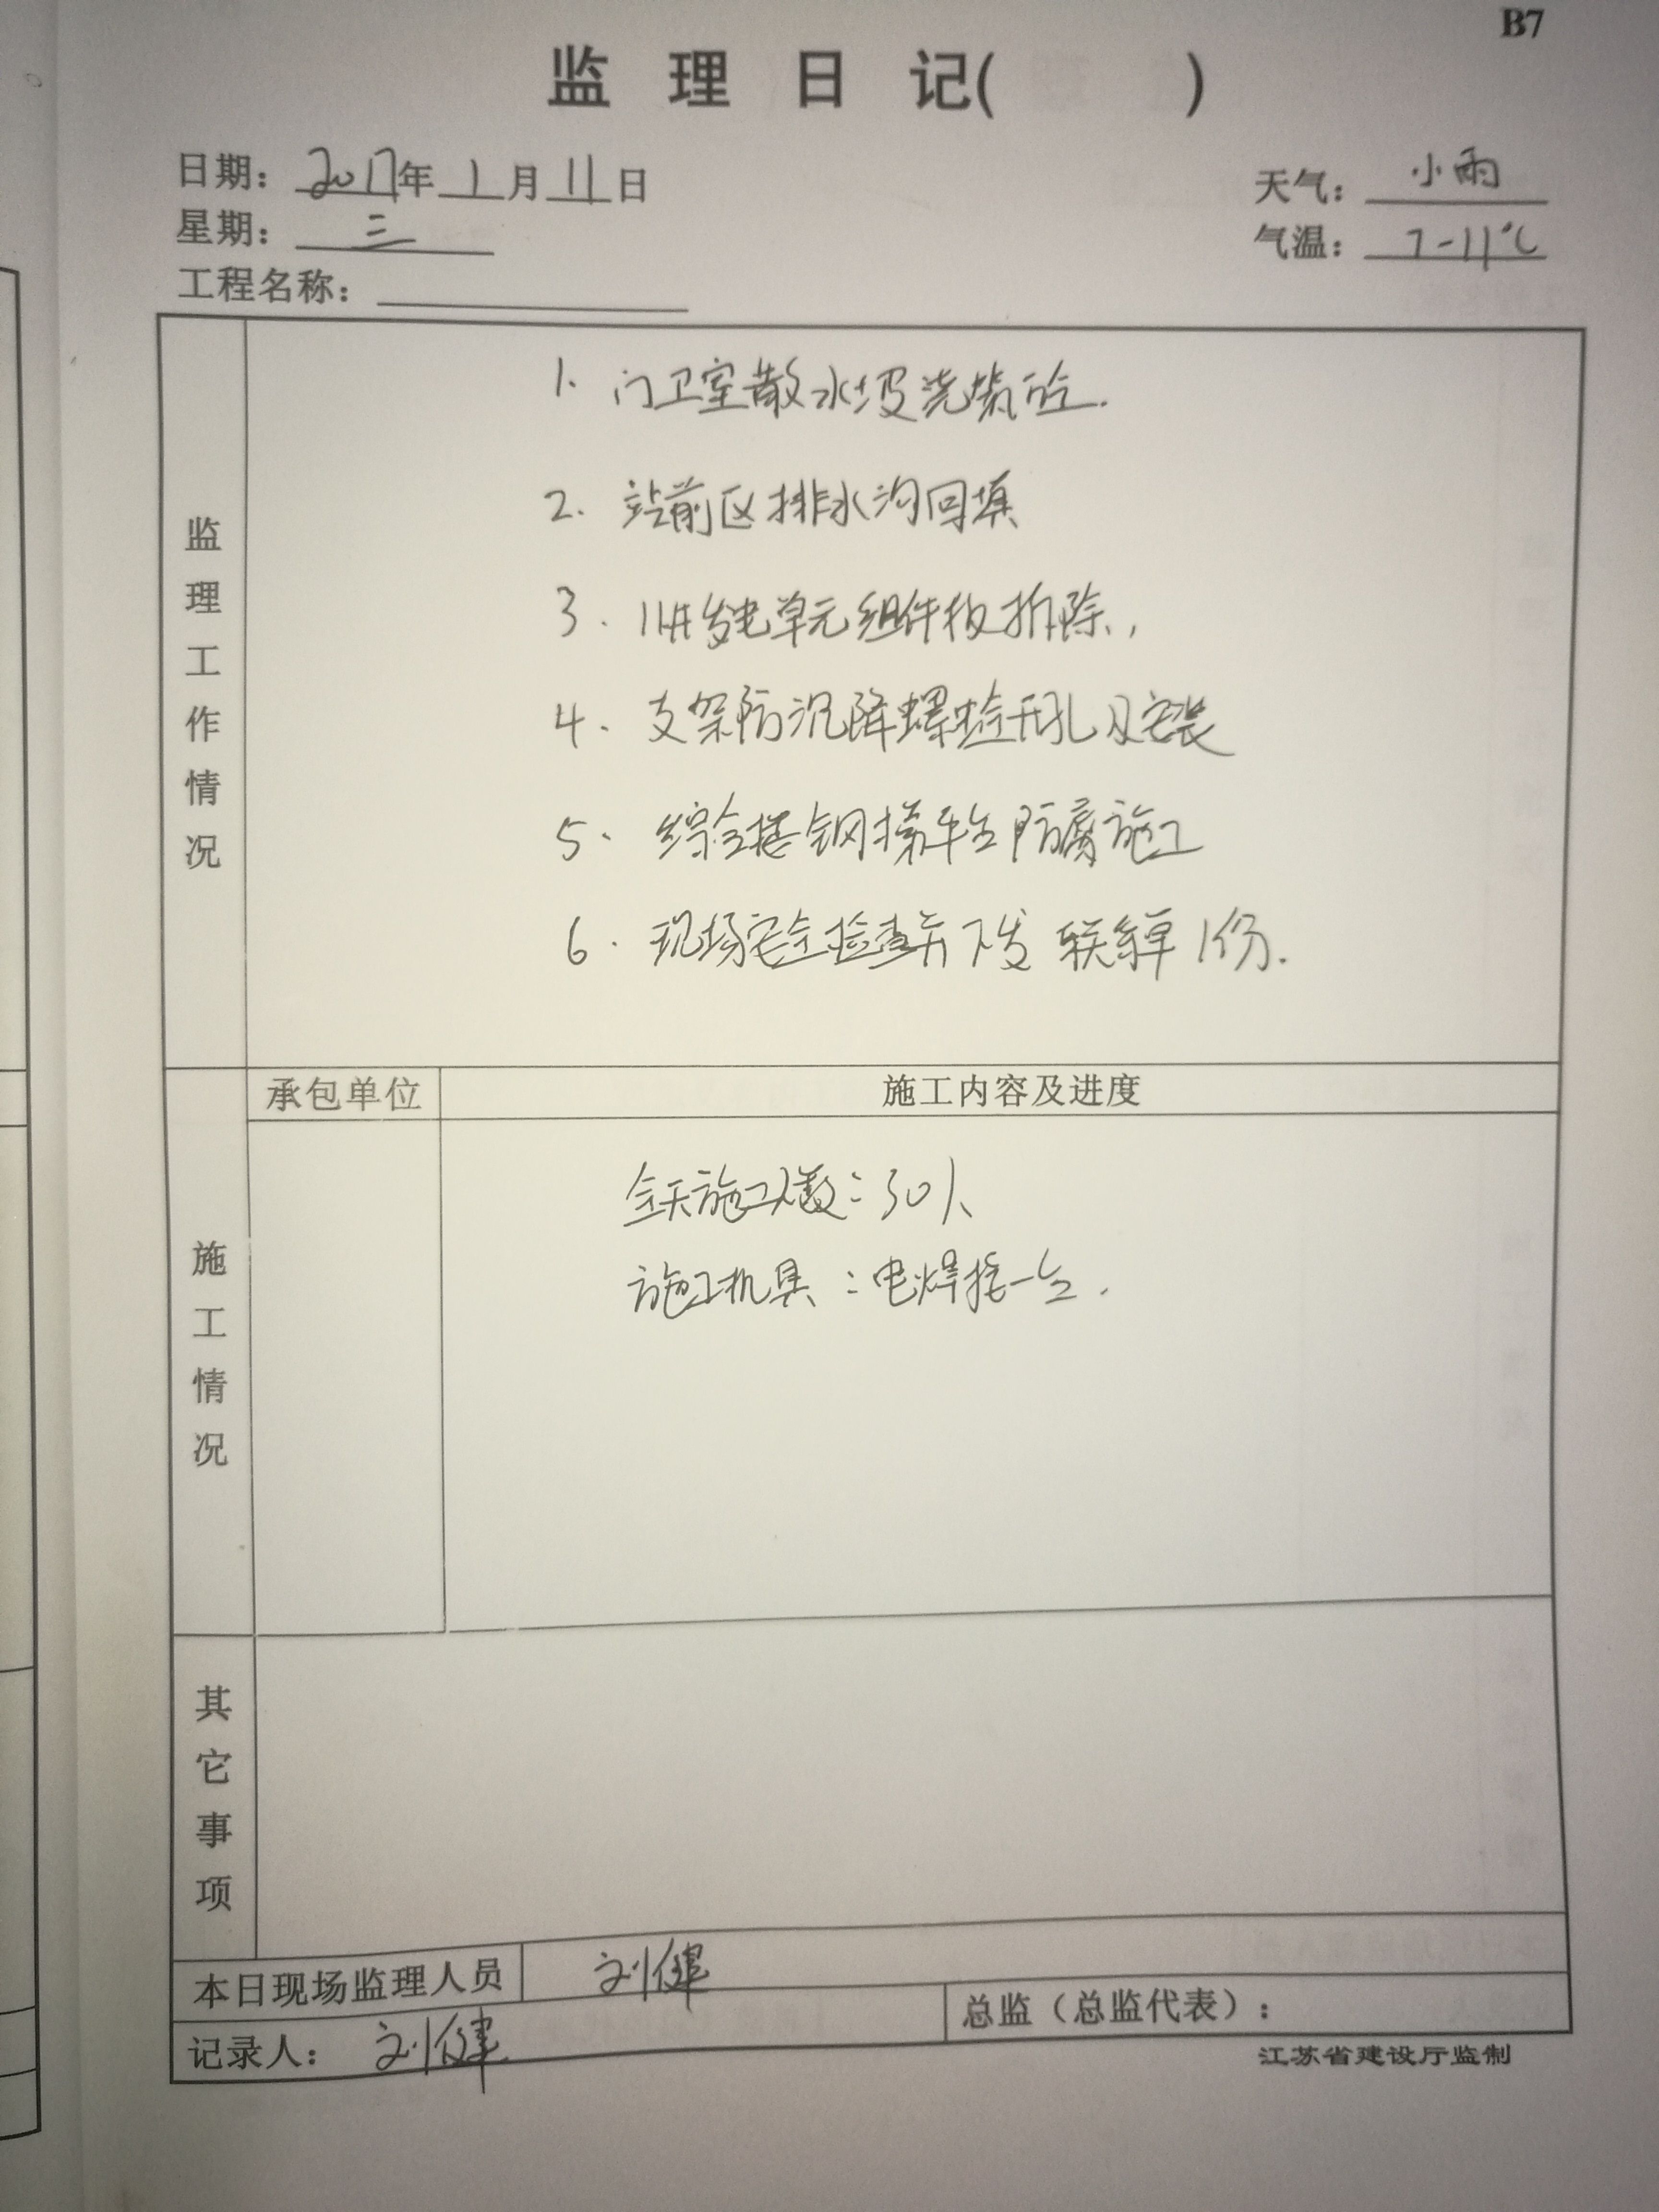 B7
监理日记( )
日期：2017年1月11日
天气：小雨
星期：三
气温：7-11℃
工程名称：
监理工作情况
1. 门卫室散水坡浇筑砼.
2. 站前区排水沟回填
3. 11#发电单元组件板拆除,
4. 支架防沉降螺栓开孔及安装
5. 综合楼钢梯平台防腐施工
6. 现场安全检查并下发联系单1份.
承包单位
施工内容及进度
施工情况
今天施工人数：30人
施工机具：电焊接一台.
其它事项
本日现场监理人员 刘健
总监（总监代表）：
记录人：刘健
江苏省建设厅监制